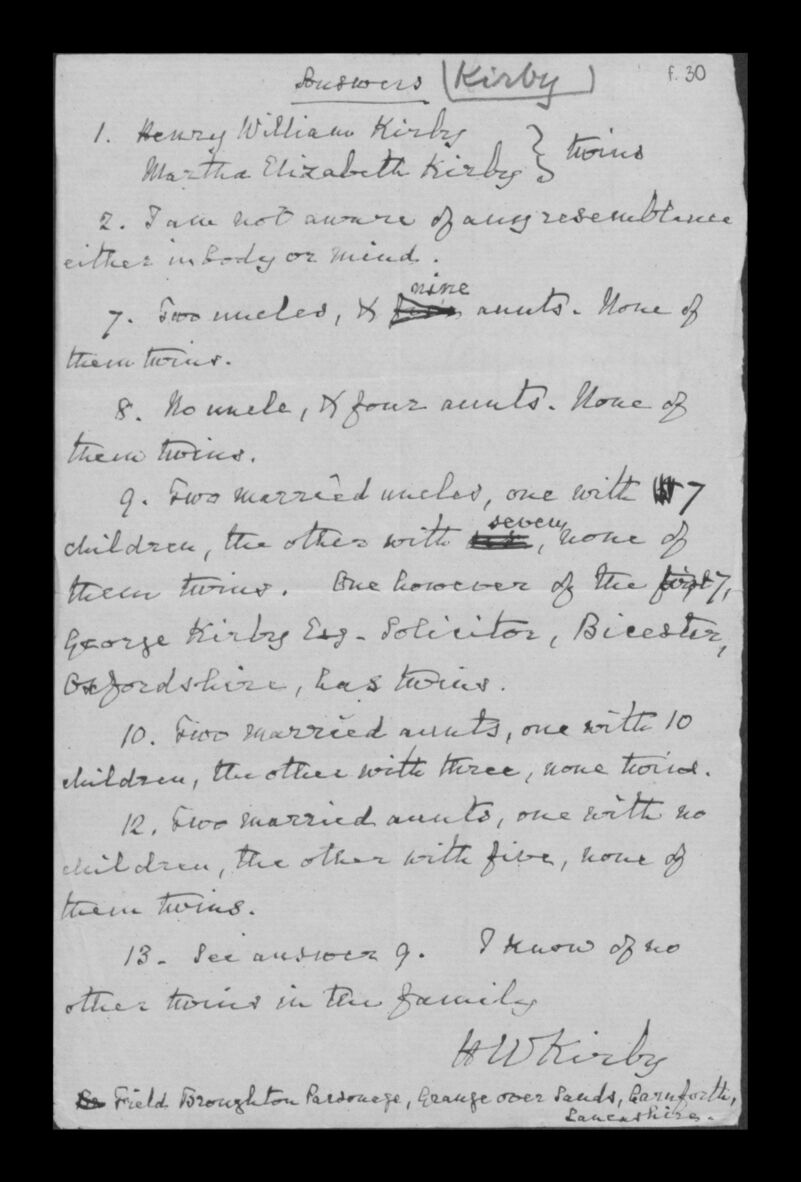 Answers (Kirby) f. 30
1. Henry William Kirby
Martha Elizabeth Kirby } twins
2. I am not aware of any resemblance
either in body or mind.
nine
7. Two uncles, & aunts. None of
them twins.
8. No uncle, & four aunts. None of
them twins.
9. Two married uncles, one with 7
seven
children, the other with , none of
them twins. One however of the first 7,
George Kirby Esq. Solicitor, Bicester,
Oxfordshire, has twins.
10. Two married aunts, one with 10
children, the other with three, none twins.
12. Two married aunts, one with no
children, the other with five, none of
them twins.
13. See answer 9. I know of no
other twins in the family
H W Kirby
Field Broughton Parsonage, Grange over Sands, Carnforth,
Lancashire.